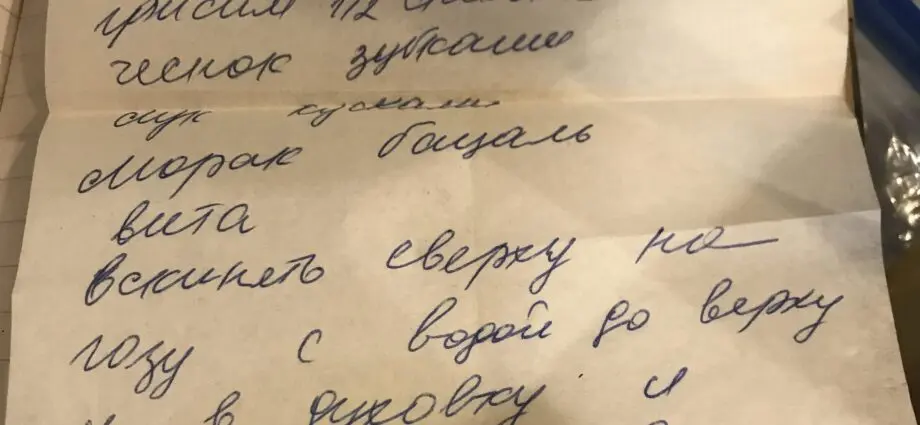 грисим 1/2
чеснок зубками
лук кусками
Марак бацаль
вита
вскинять сверху на
газу с водой до верху
и в духовку и